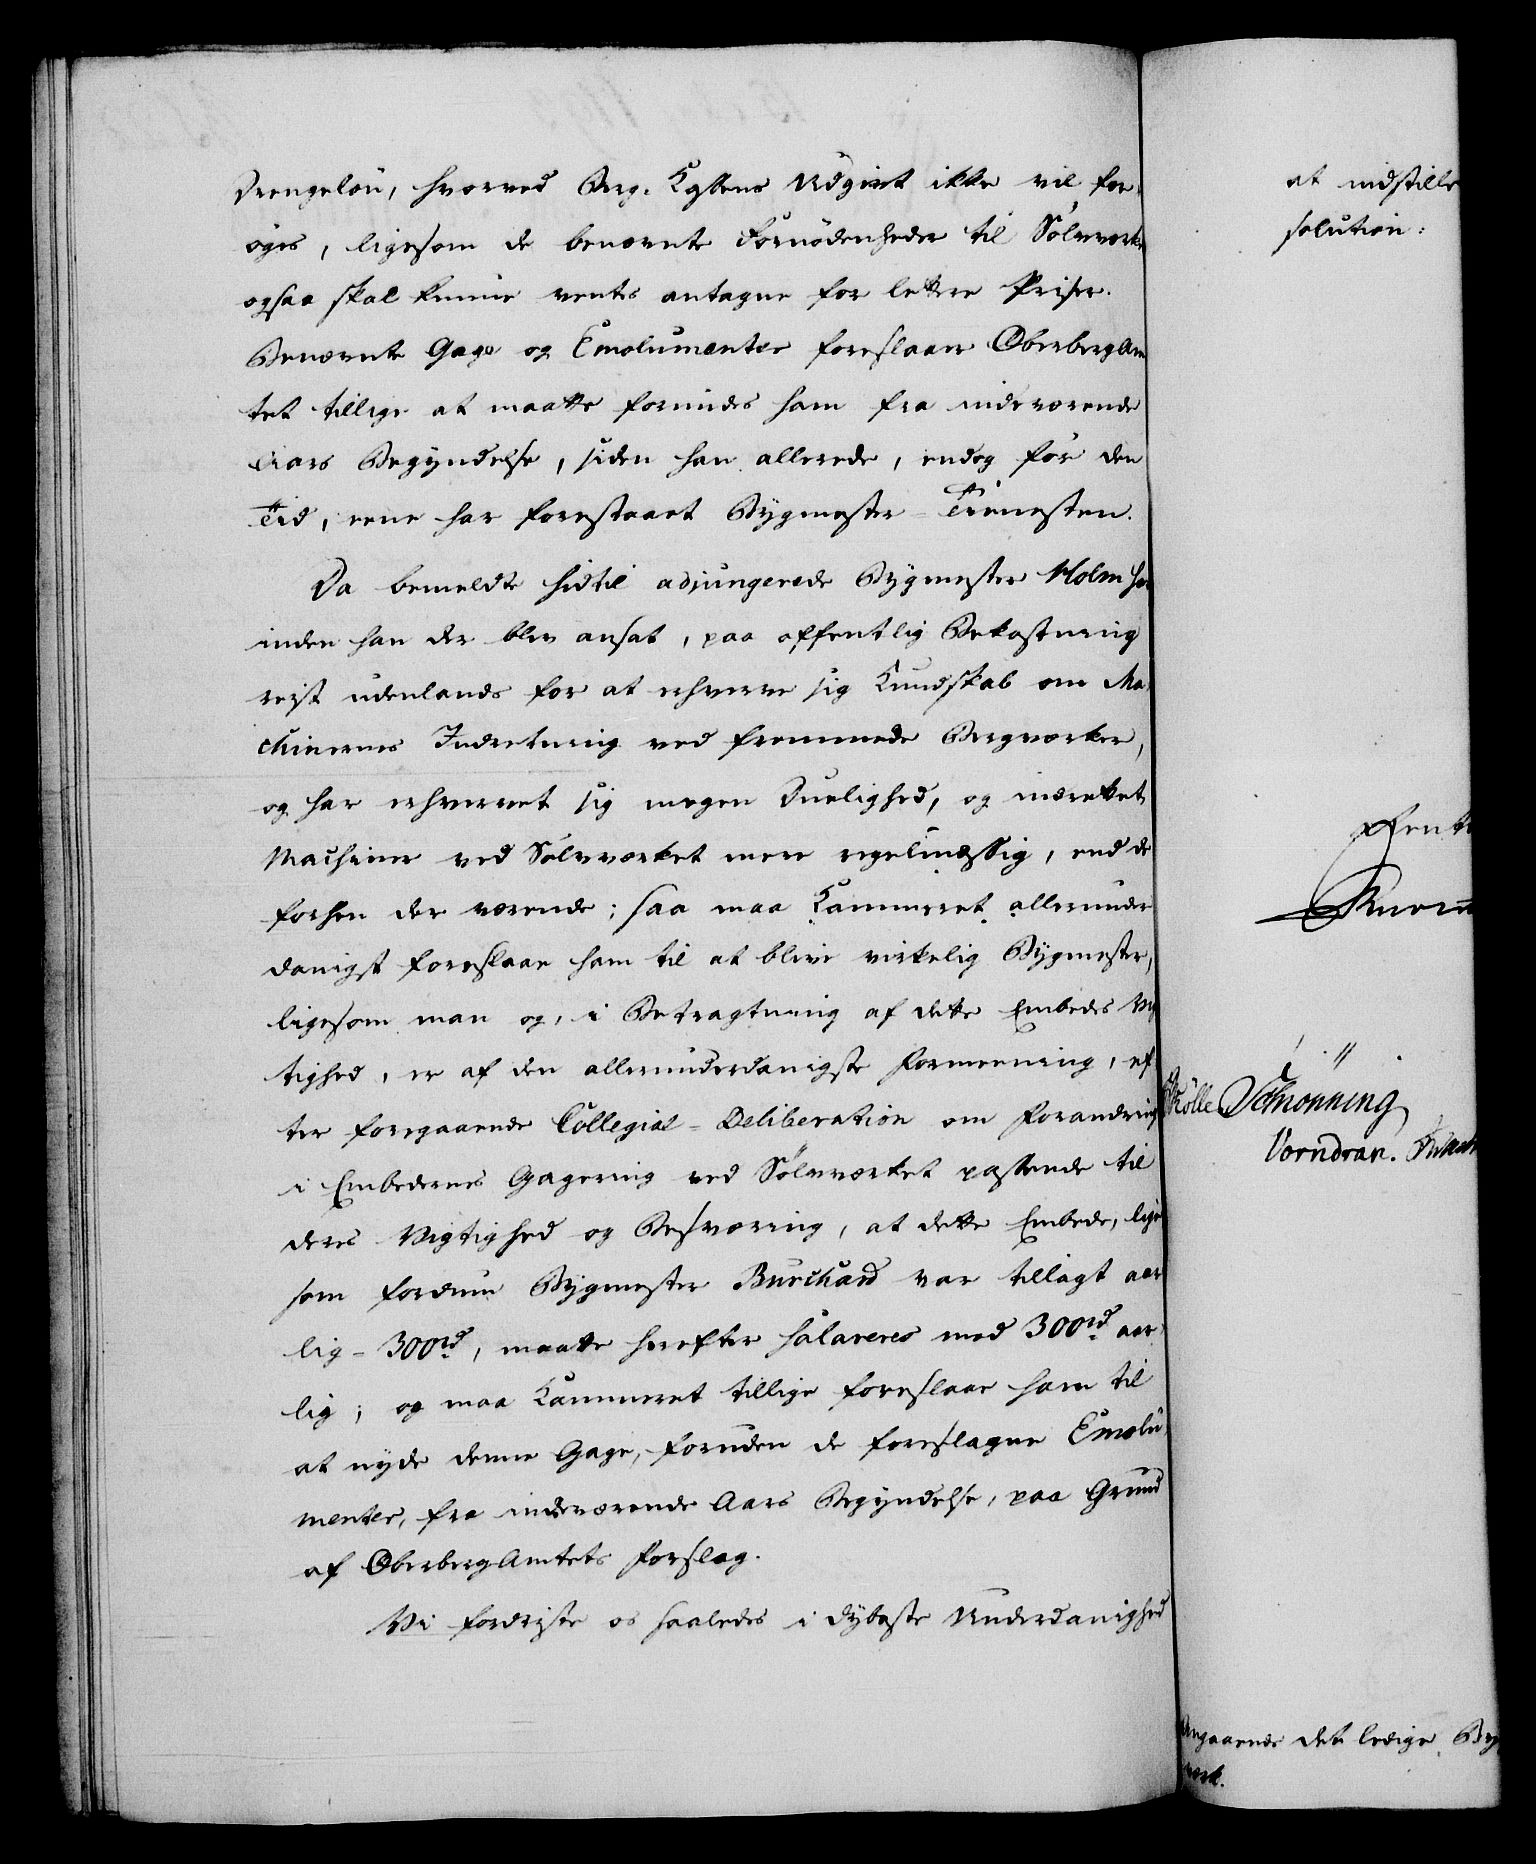 Drengeløn, hvorved Berg-Cassens Udgivt ikke vil for-
øges, ligesom de benævnte Fornødenheder til Sølvværket
ogsaa skal kunne ventes antagne for lettere Priser.
Benævnte Gage og Emolumenter foreslaaer OberbergAm-
tet tillige at maatte forundes ham fra indeværende
Aars Begyndelse, siden han allerede, endog før den
Tid, ene har forestaaet Bygmester-Tienesten.
Da bemeldte hidtil adjungerede Bygmester Holm har
inden han der blev ansat, paa offentlig Bekostning
reist udenlands for at erhverve sig Kundskab om Ma-
chinernes Indretning ved fremmede Bergværker,
og har erhvervet sig megen Duelighed, og indrettet
Machiner ved Sølvværket mere regelmæssig, end de
forhen der værende; saa maa Kammeret allerunder-
danigst foreslaae ham til at blive virkelig Bygmester,
ligesom man og, i Betragtning af dette Embedes Vig-
tighed, er af den allerunderdanigste Formeening, ef-
ter foregaaende Collegial-Deliberation om Forandring
i Embedernes Gagering ved Sølvværket passende til
deres Vigtighed og Besværing, at dette Embede, lige-
som fordum Bygmester Burchard var tillagt aar-
lig - 300rd, maatte herefter salareres med 300rd aar-
lig; og maa Kammeret tillige foreslaae ham til
at nyde denne Gage, foruden de foreslagne Emolu-
menter, fra indeværende Aars Begyndelse, paa Grund
af OberbergAmtets Forslag.
Vi fordriste os saaledes i dybeste Underdanighed
at indstille
solution:
Schønning
Vorndran.
Angaaende det ledige Byg
værk.